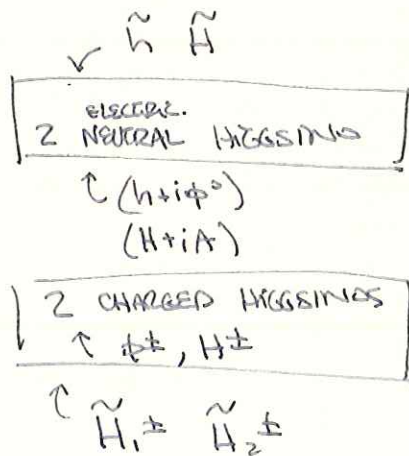 h̃ H̃
↙
ELECTRIC.
2 NEUTRAL HIGGSINO
↑ (h+iφ°)
(H+iA)
2 CHARGED HIGGSINOS
↑ φ±, H±
↑
H̃₁± H̃₂±